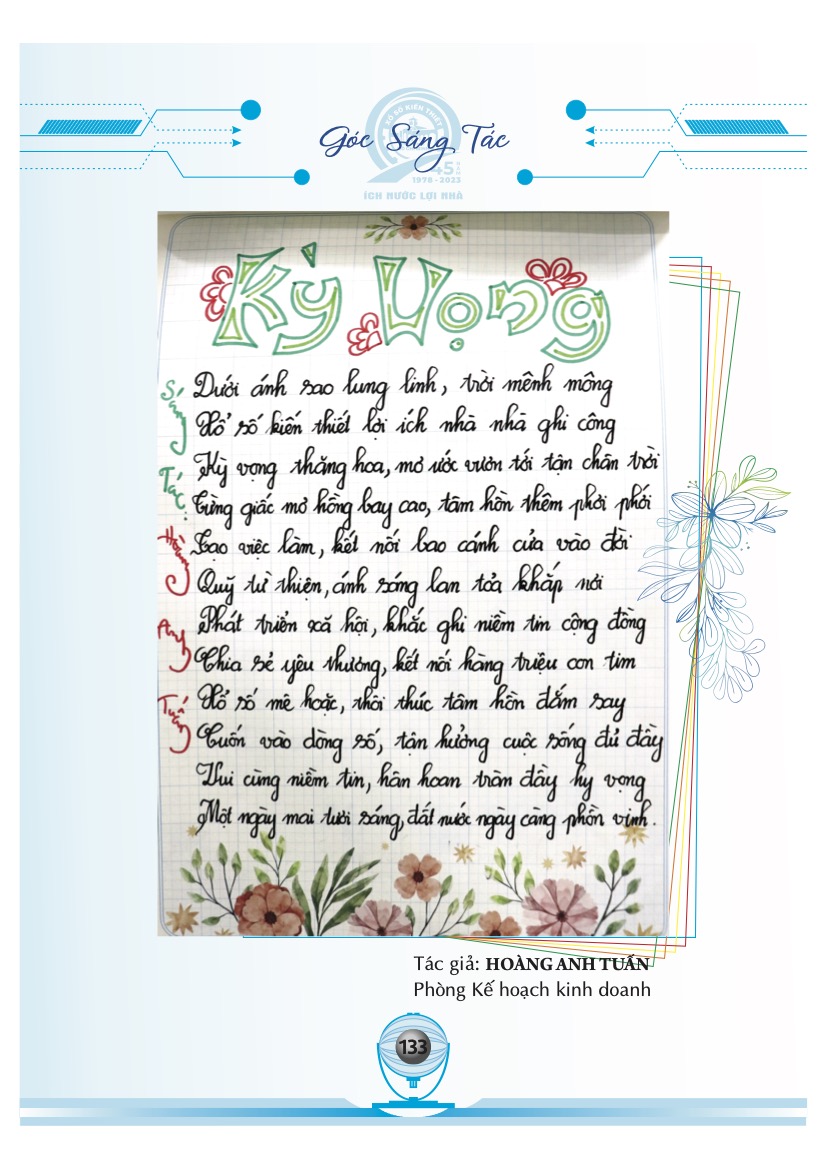 XỔ SỐ KIẾN THIẾT
Góc Sáng Tác
45 NĂM
1978 - 2023
ÍCH NƯỚC LỢI NHÀ
Kỳ Vọng
Dưới ánh sao lung linh, trời mênh mông
Xổ số kiến thiết lợi ích nhà nhà ghi công
Kỳ vọng thăng hoa, mơ ước vươn tới tận chân trời
Từng giấc mơ hồng bay cao, tâm hồn thêm phơi phới
Tạo việc làm, kết nối bao cánh cửa vào đời
Quỹ từ thiện, ánh sáng lan tỏa khắp nơi
Phát triển xã hội, khắc ghi niềm tin cộng đồng
Chia sẻ yêu thương, kết nối hàng triệu con tim
Xổ số mê hoặc, thôi thúc tâm hồn đắm say
Cuốn vào dòng số, tận hưởng cuộc sống đủ đầy
Vui cùng niềm tin, hân hoan tràn đầy hy vọng
Một ngày mai tươi sáng, đất nước ngày càng phồn vinh.
Sáng
Tác:
Hoàng
Anh
Tuấn
Tác giả: HOÀNG ANH TUẤN
Phòng Kế hoạch kinh doanh
133